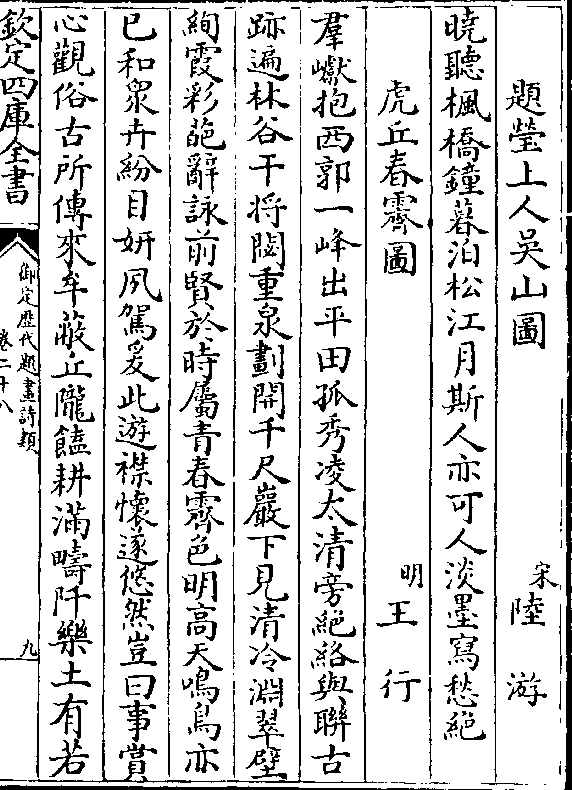 題瑩上人吳山圖 宋陸游
曉聽楓橋鐘暮泊松江月斯人亦可人淡墨寫愁絕
虎丘春霽圖 明王行
羣巘抱西郭一峰出平田孤秀凌太清旁絕絡與聯古
跡遍林谷干将閟重泉劃開千尺巖下見清冷淵翠壁
絢霞彩葩辭詠前賢於時屬青春霽色明高天鳴鳥亦
已和眾卉紛目妍夙駕爰此遊襟懷遂悠然豈曰事賞
心觀俗古所傳來牟蔽丘隴饁耕滿疇阡樂土有若
欽定四庫全書
御定歷代題畫詩類
卷二十八
九